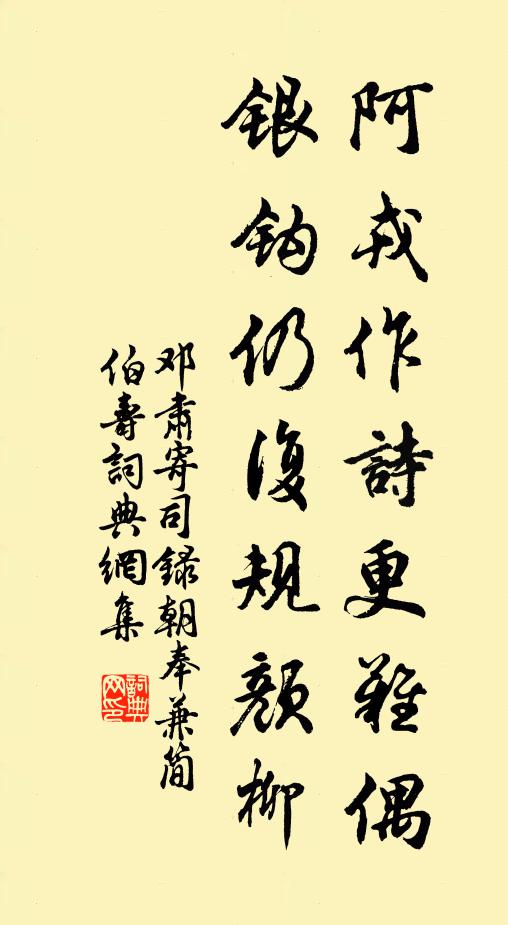 阿戎作詩更難偶
銀鈎仍復規顏柳
邓肅寄司録朝奉兼簡
伯壽詞典網集
詞典网印